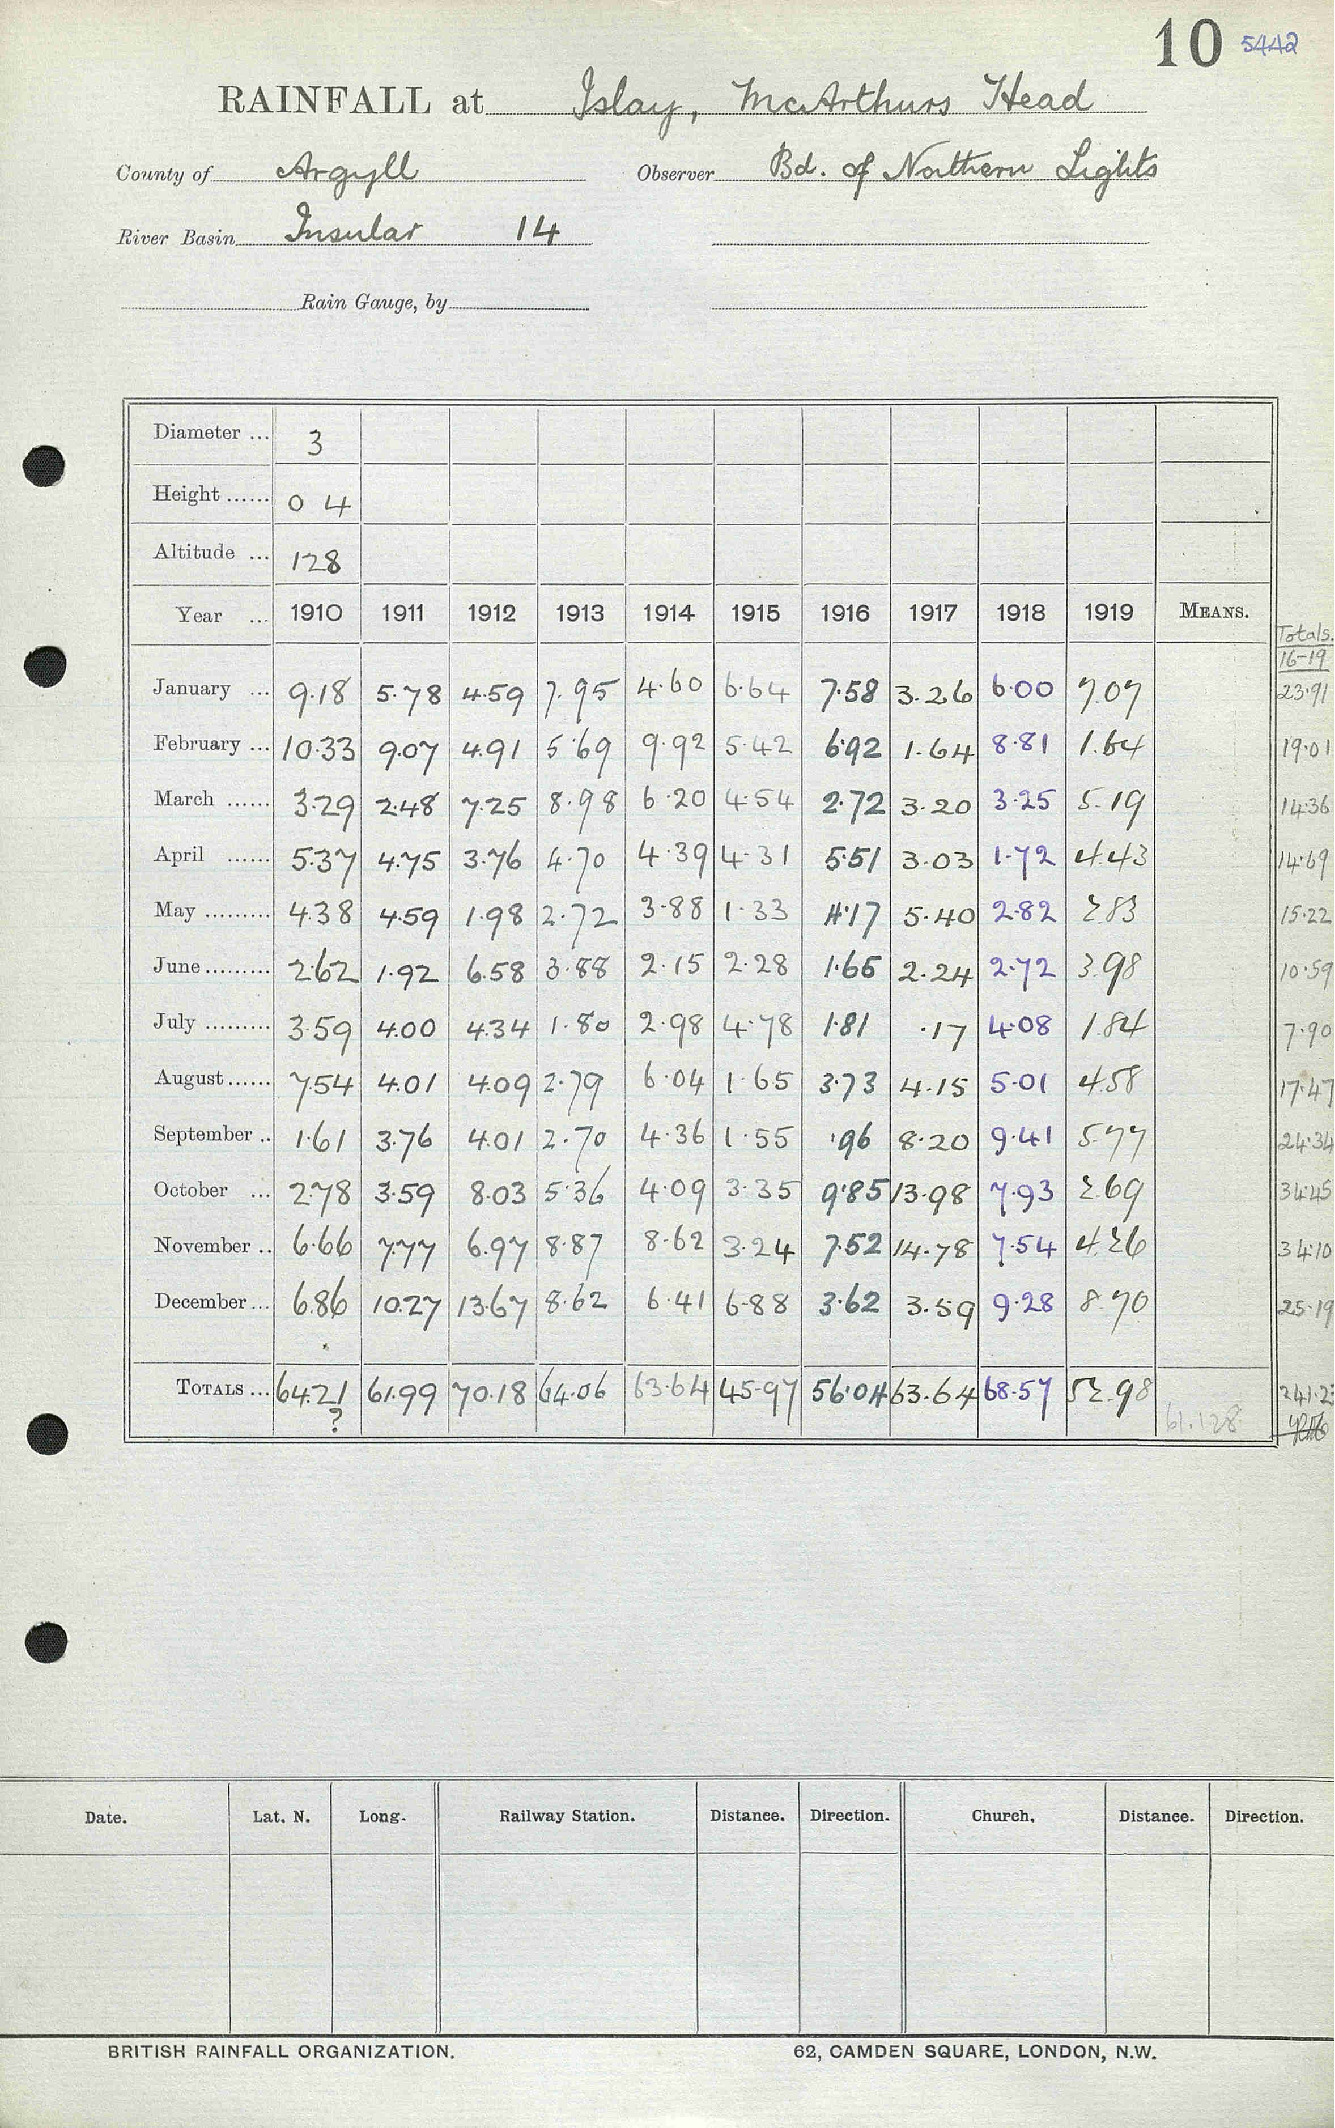 10 5442
RAINFALL at Islay, McArthurs Head
County of Argyll Observer Bd. of Northern Lights
River Basin Insular 14
Rain Gauge, by
Diameter ... 3
Height ...... 0 4
Altitude ... 128
Year ... 1910 1911 1912 1913 1914 1915 1916 1917 1918 1919 MEANS.
Totals.
16-19
January ... 9.18 5.78 4.59 7.95 4.60 6.64 7.58 3.26 6.00 7.07 23.91
February ... 10.33 9.07 4.91 5.69 9.92 5.42 6.92 1.64 8.81 1.64 19.01
March ...... 3.29 2.48 7.25 8.98 6.20 4.54 2.72 3.20 3.25 5.19 14.36
April ...... 5.37 4.75 3.76 4.70 4.39 4.31 5.51 3.03 1.72 4.43 14.69
May ......... 4.38 4.59 1.98 2.72 3.88 1.33 4.17 5.40 2.82 2.83 15.22
June ......... 2.62 1.92 6.58 3.88 2.15 2.28 1.65 2.24 2.72 3.98 10.59
July ......... 3.59 4.00 4.34 1.80 2.98 4.78 1.81 .17 4.08 1.84 7.90
August ...... 7.54 4.01 4.09 2.79 6.04 1.65 3.73 4.15 5.01 4.58 17.47
September .. 1.61 3.76 4.01 2.70 4.36 1.55 .96 8.20 9.41 5.77 24.34
October ... 2.78 3.59 8.03 5.36 4.09 3.35 9.85 13.98 7.93 2.69 34.45
November .. 6.66 7.77 6.97 8.87 8.62 3.24 7.52 14.78 7.54 4.26 34.10
December ... 6.86 10.27 13.67 8.62 6.41 6.88 3.62 3.59 9.28 8.70 25.19
TOTALS ... 64.21 61.99 70.18 64.06 63.64 45.97 56.04 63.64 68.57 52.98 241.23
? 61.128
Date. Lat. N. Long. Railway Station. Distance. Direction. Church. Distance. Direction.
BRITISH RAINFALL ORGANIZATION. 62, CAMDEN SQUARE, LONDON, N.W.